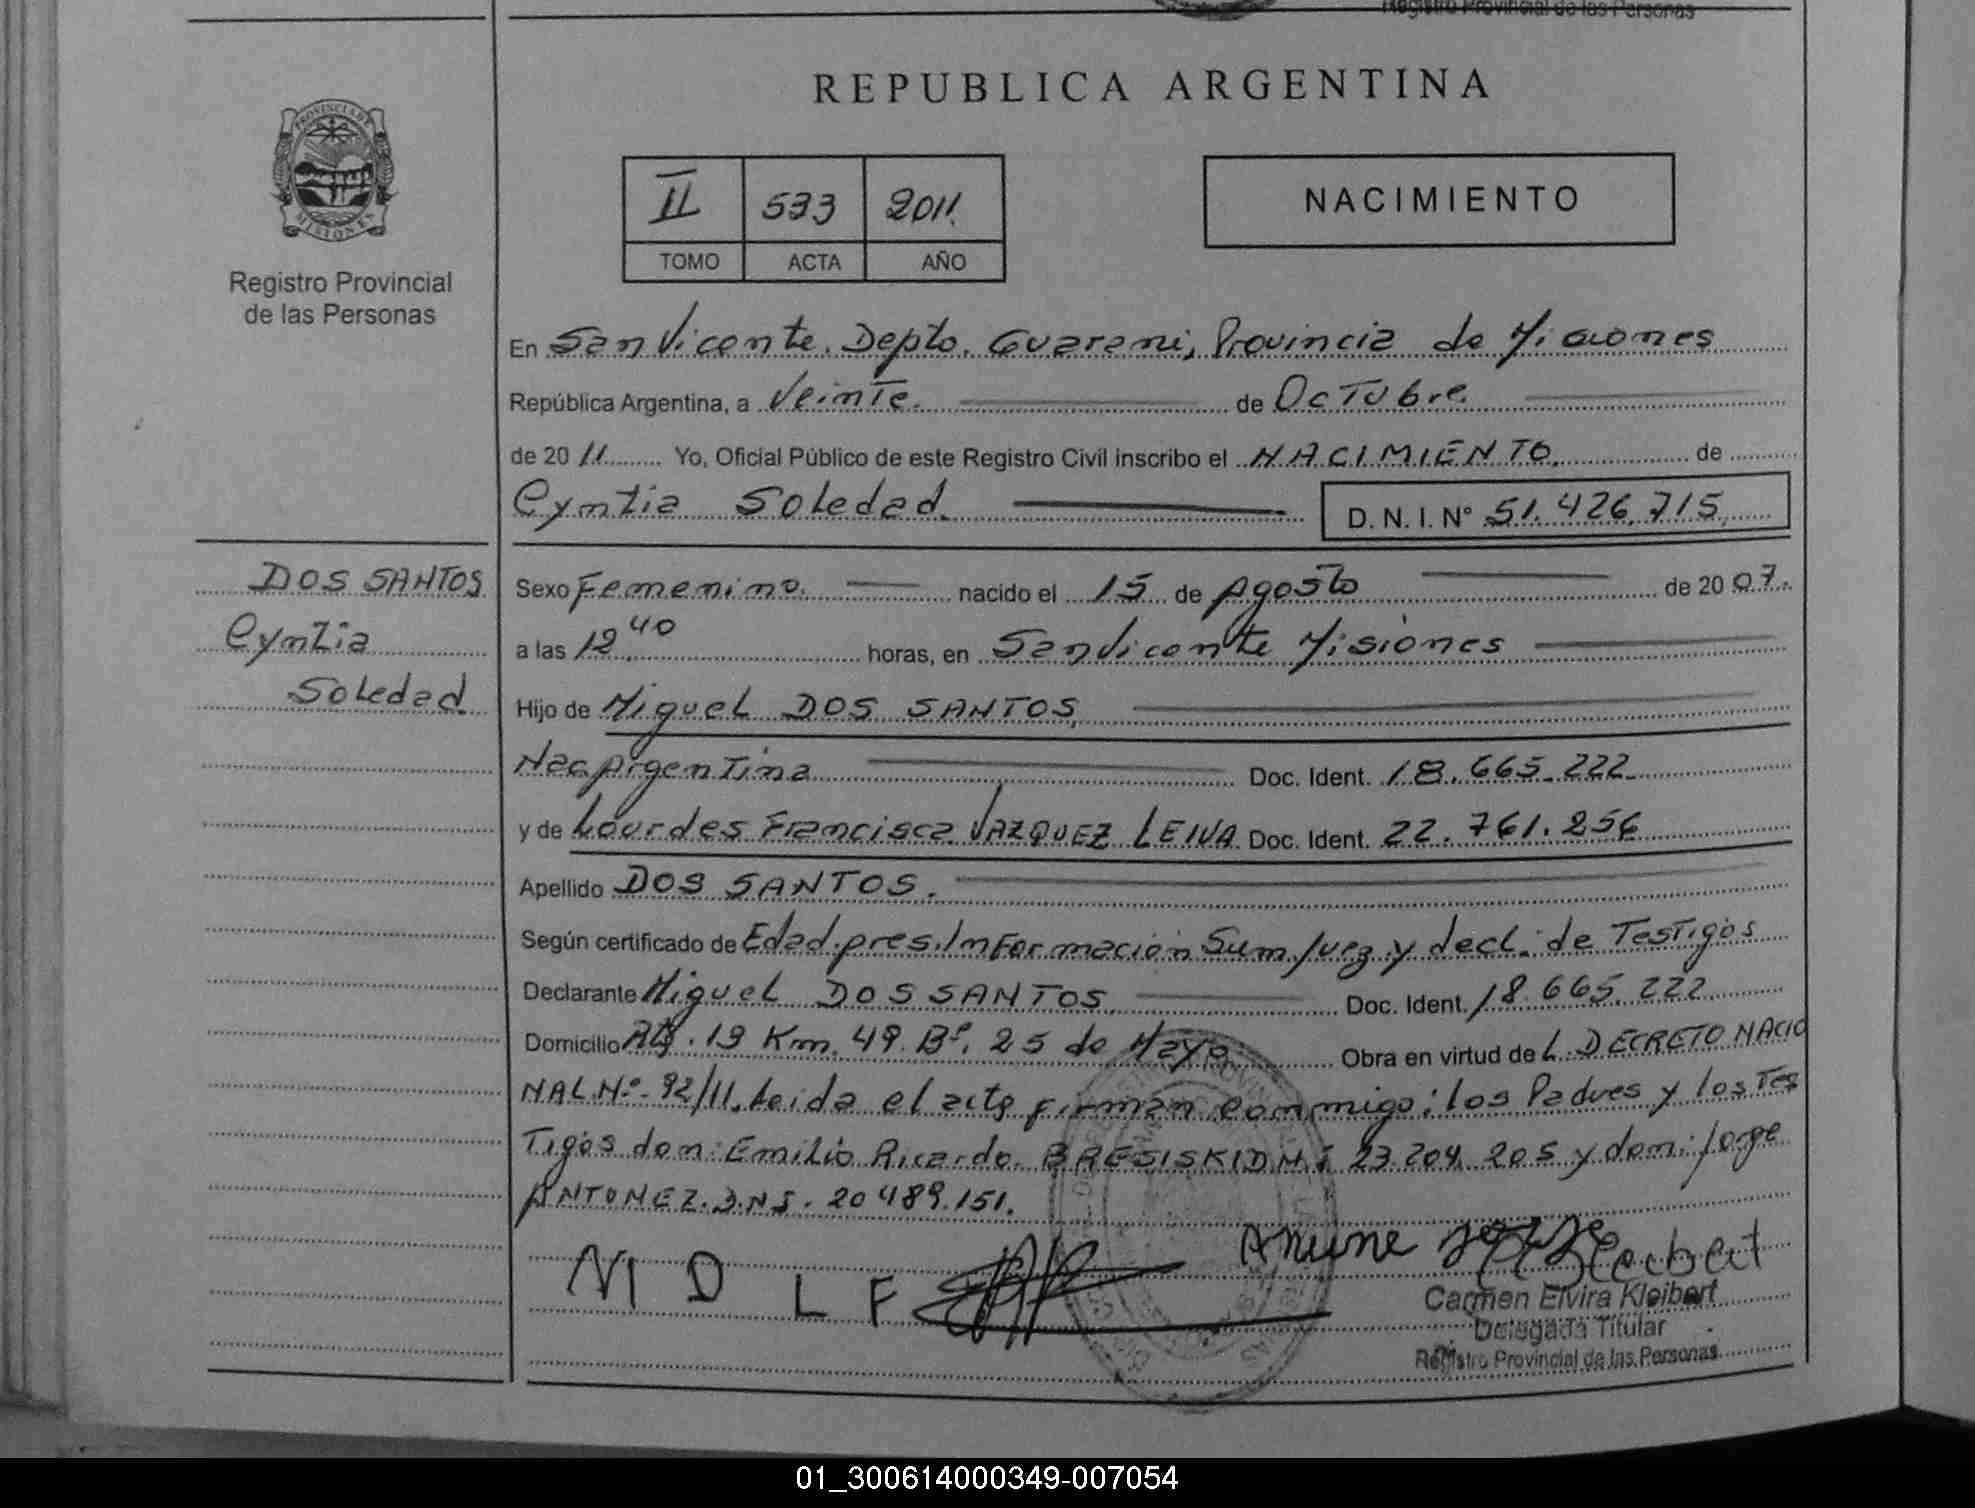 Registro Provincial de las Personas
REPUBLICA ARGENTINA
PROVINCIA DE
MISIONES
Registro Provincial
de las Personas
II 533 2011.
TOMO ACTA AÑO
NACIMIENTO
En San Vicente. Depto. Guarani, Provincia de Misiones
República Argentina, a Veinte. de Octubre.
de 2011 Yo, Oficial Público de este Registro Civil inscribo el NACIMIENTO. de
Cyntia Soledad. D. N. I. N° 51.426.715
DOS SANTOS
Cyntia
Soledad
Sexo Femenino. nacido el 15 de Agosto de 2007.
a las 12 40 horas, en San Vicente Misiones
Hijo de Miguel DOS SANTOS,
Nac Argentina Doc. Ident. 18.665.222
y de Lourdes Francisca VAZQUEZ LEIVA Doc. Ident. 22.761.256
Apellido DOS SANTOS.
Según certificado de Edad.pres.Informacion Sum.Juez y decl. de Testigos
Declarante Miguel DOS SANTOS Doc. Ident. 18.665.222
Domicilio Rta. 13 Km. 49. B°. 25 de Mayo Obra en virtud de L. DECRETO NACIO
NAL N°. 92/11. Leida el acta firman conmigo: los Padres y los Tes
Tigos don: Emilio Ricardo BRESISKI DNI 23.204.205 y don: Jorge
ANTUNEZ. DNI. 20 489.151.
M D L F
Carmen Elvira Kleibert
Delegada Titular
Registro Provincial de las Personas
01_300614000349-007054